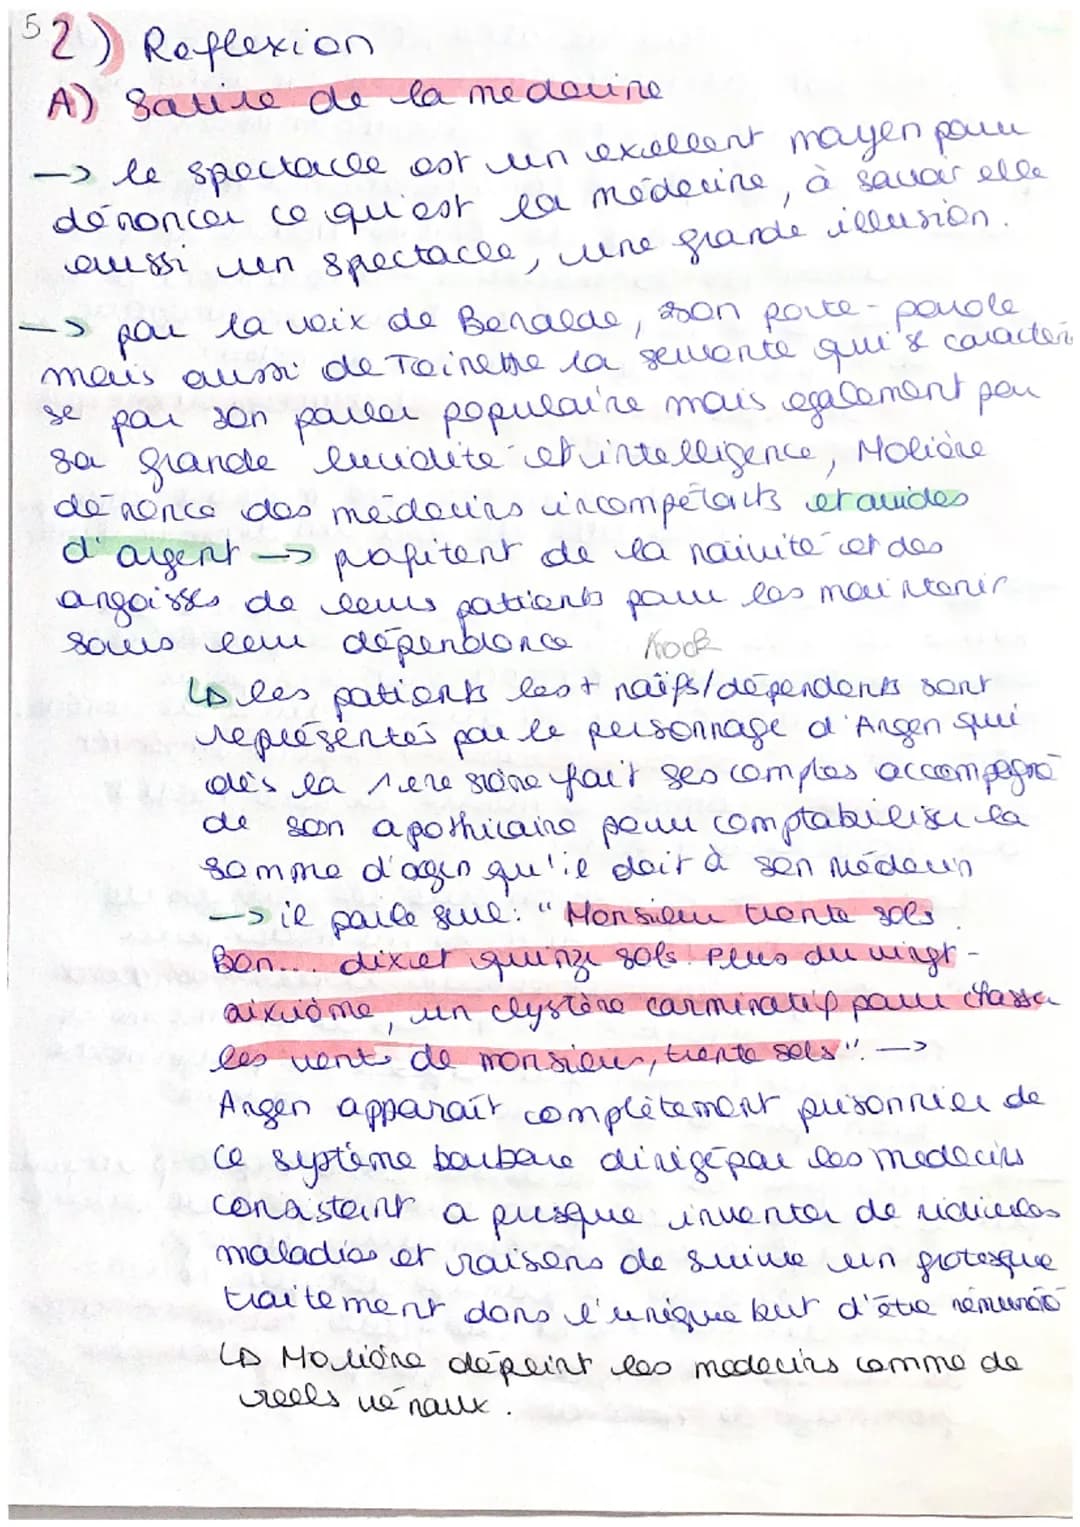 5
2) Reflexion
A) Satire de la medecine
-> le spectacle est un excellent moyen pour
dénoncer ce qu'est la médecine, à savoir elle
aussi un spectacle, une grande illusion.
-> par la voix de Beralde, son porte-parole
mais aussi de Toinette la servante qui s caractéri
se par son parler populaire mais egalement par
sa grande lucidité et intelligence, Molière
dénonce des médecins incompétants et avides
d'argent -> profitent de la naiveté et des
angoisses de leurs patients pour les maintenir
sous leur dépendance Knock
↳ les patients les + naïfs/dépendants sont
représentés par le personnage d'Argan qui
dès la 1ere scène fait ses comptes accompagné
de son apothicaire pour comptabiliser la
somme d'agen qu'il doit à son médecin
-> il parle seul: "Monsieur trente sols.
Bon.. dix et quinze sols. Plus du vingt-
sixième, un clystère carminatif pour chasser
les vents de monsieur, trente sols". ->
Argan apparaît complètement prisonnier de
ce système barbare dirigé par les medecins
consistant a presque inventer de ridicules
maladies et raisons de suivre un grotesque
traitement dans l'unique but d'être rémunéré
↳ Molière dépeint les medecins comme de
reels vénaux.